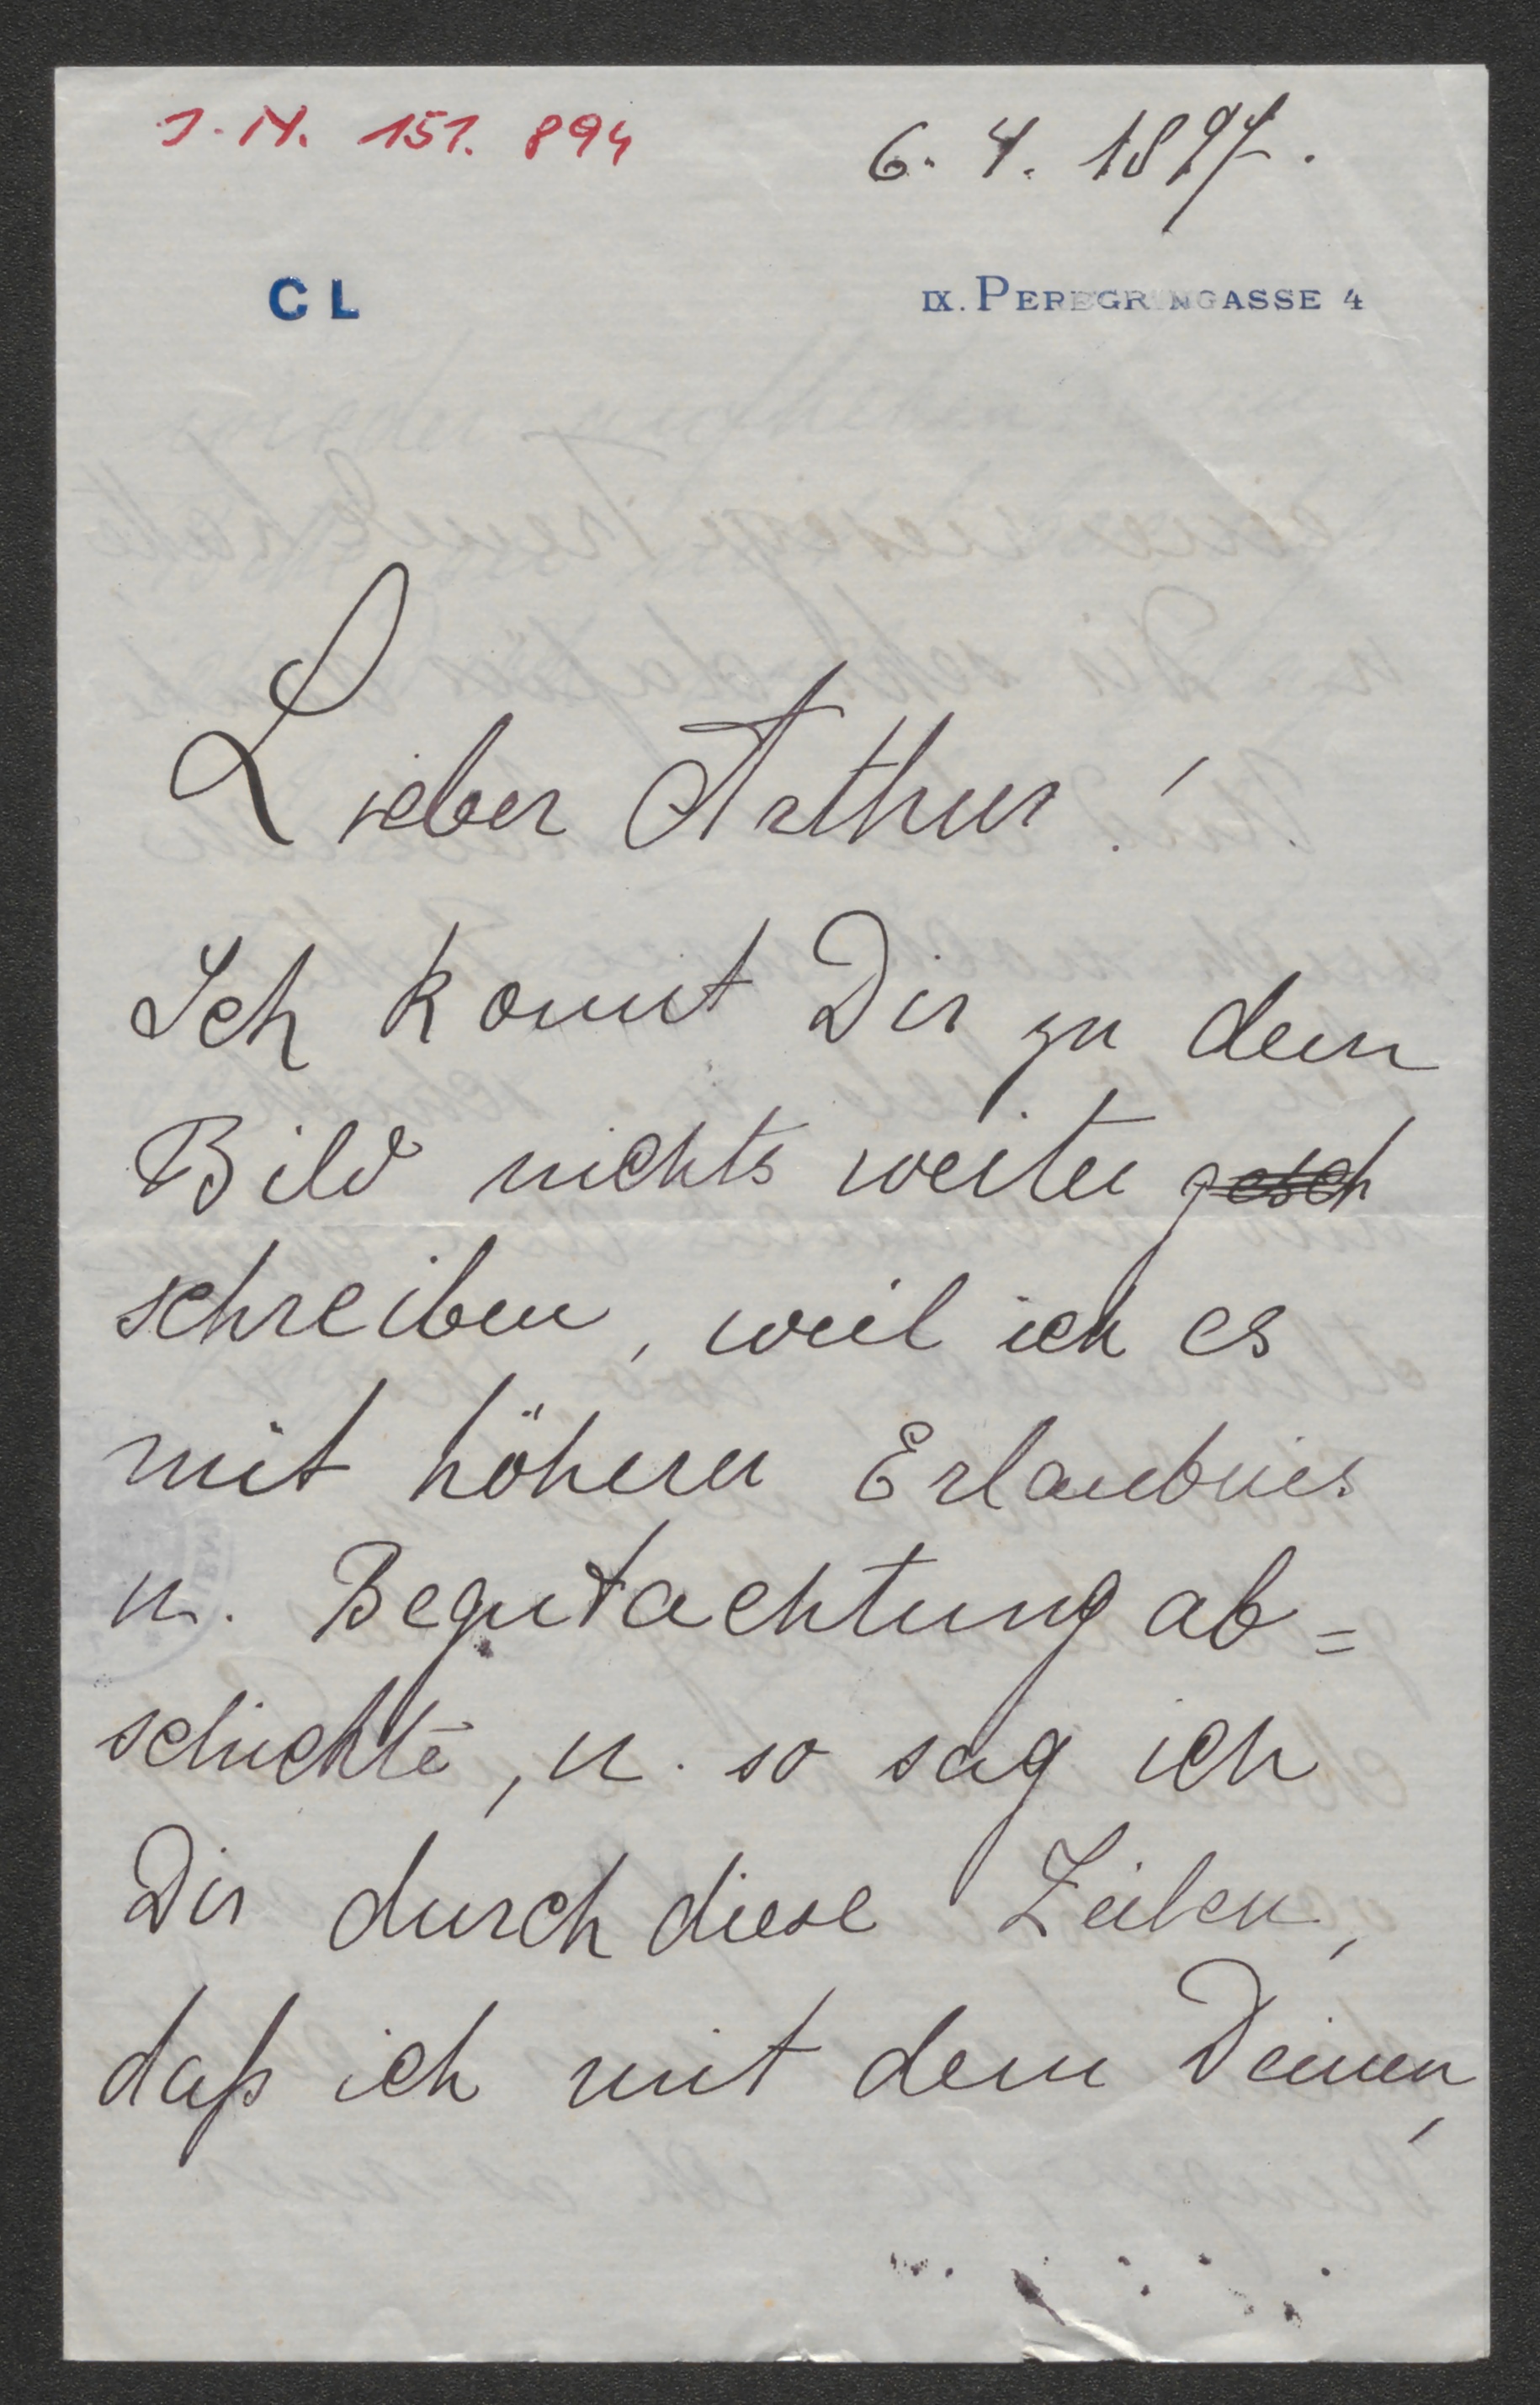 J. N. 151. 894
6. 4. 1897.
C L
IX. PEREGRINGASSE 4
Lieber Arthur!
Ich konnt Dir zu dem
Bild nichts weiter gesch
schreiben, weil ich es
mit höherer Erlaubnis
u. Begutachtung ab=
schickte, u. so sag ich
Dir durch diese Zeilen,
daß ich mit dem Deinen,